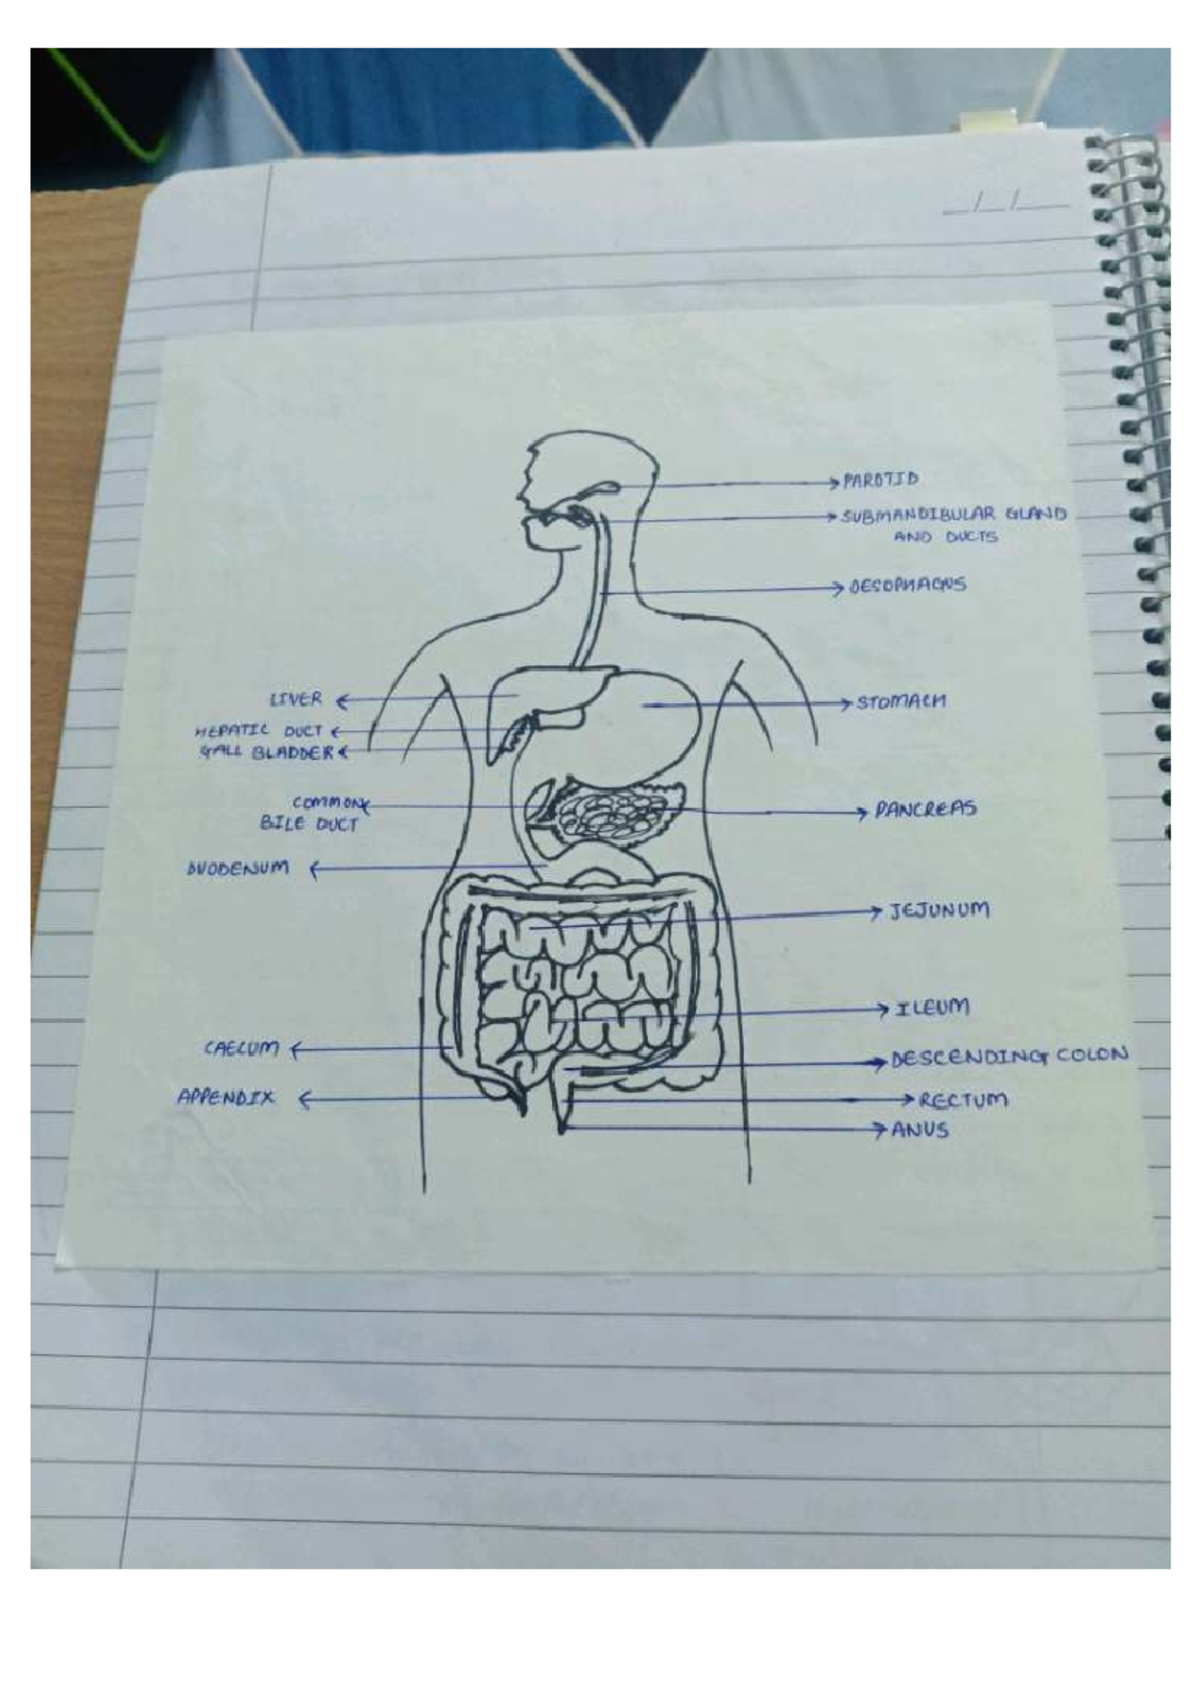 PAROTID
SUBMANDIBULAR GLAND
AND DUCTS
OESOPHAGUS
LIVER
STOMACH
HEPATIC DUCT
GALL BLADDER
COMMON
BILE DUCT
PANCREAS
DUODENUM
JEJUNUM
ILEUM
CAECUM
DESCENDING COLON
APPENDIX
RECTUM
ANUS